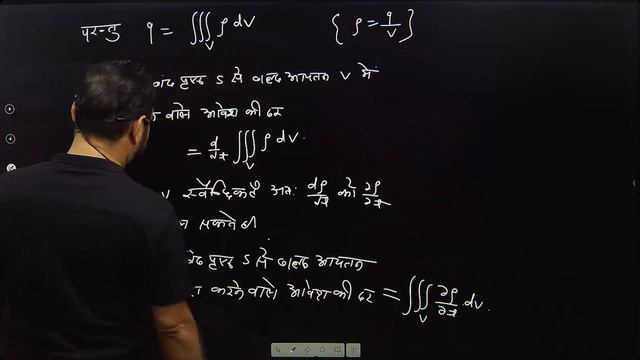 परन्तु q = ∭_V ρ dV { ρ = q/V }
बंद पृष्ठ S से बाहर आयतन V में
वाले आवेश की दर
= d/dt ∭_V ρ dV.
V स्वैच्छिक है अतः dρ/dt को ∂ρ/∂t
सकते हैं
बंद पृष्ठ S से बाहर आयतन
करने वाले आवेश की दर = ∭_V ∂ρ/∂t dV.